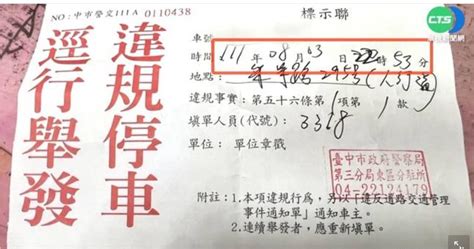 NO:中市警交111A 0110438
標示聯
CTS
華視新聞網
違規停車
逕行舉發
車號:
時間:111年08月03日22時53分
地點:295號(人行道)
違規事實:第五十六條第1項第1款
填單人員(代號):3318
單位:單位章戳
臺中市政府警察局
第三分局東區分駐所
04-22124179
附註:1.本項違規行為,另以「違反道路交通管理
事件通知單」通知車主。
2.連續舉發者,應重新填單。